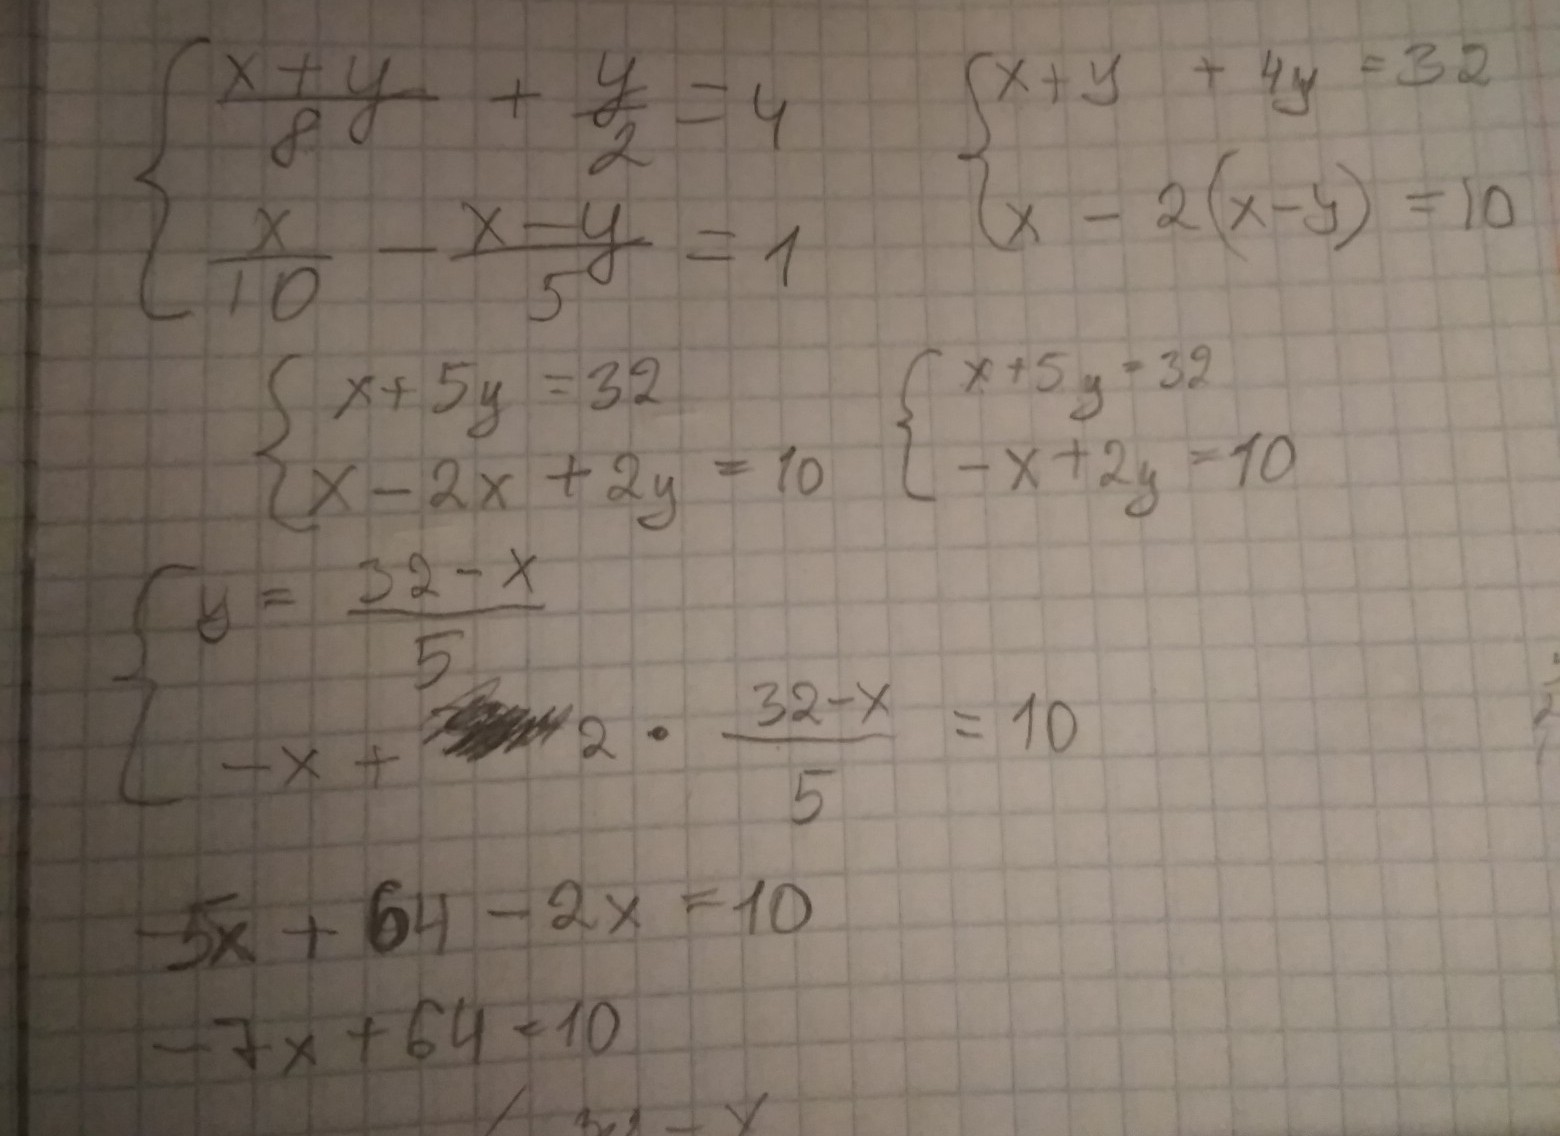 { (x+y)/8 + y/2 = 4
x/10 - (x-y)/5 = 1
{ x+y + 4y = 32
x - 2(x-y) = 10
{ x+5y = 32
x - 2x + 2y = 10
{ x+5y = 32
-x+2y = 10
{ y = (32-x)/5
-x + 2 · (32-x)/5 = 10
-5x + 64 - 2x = 10
-7x + 64 = 10